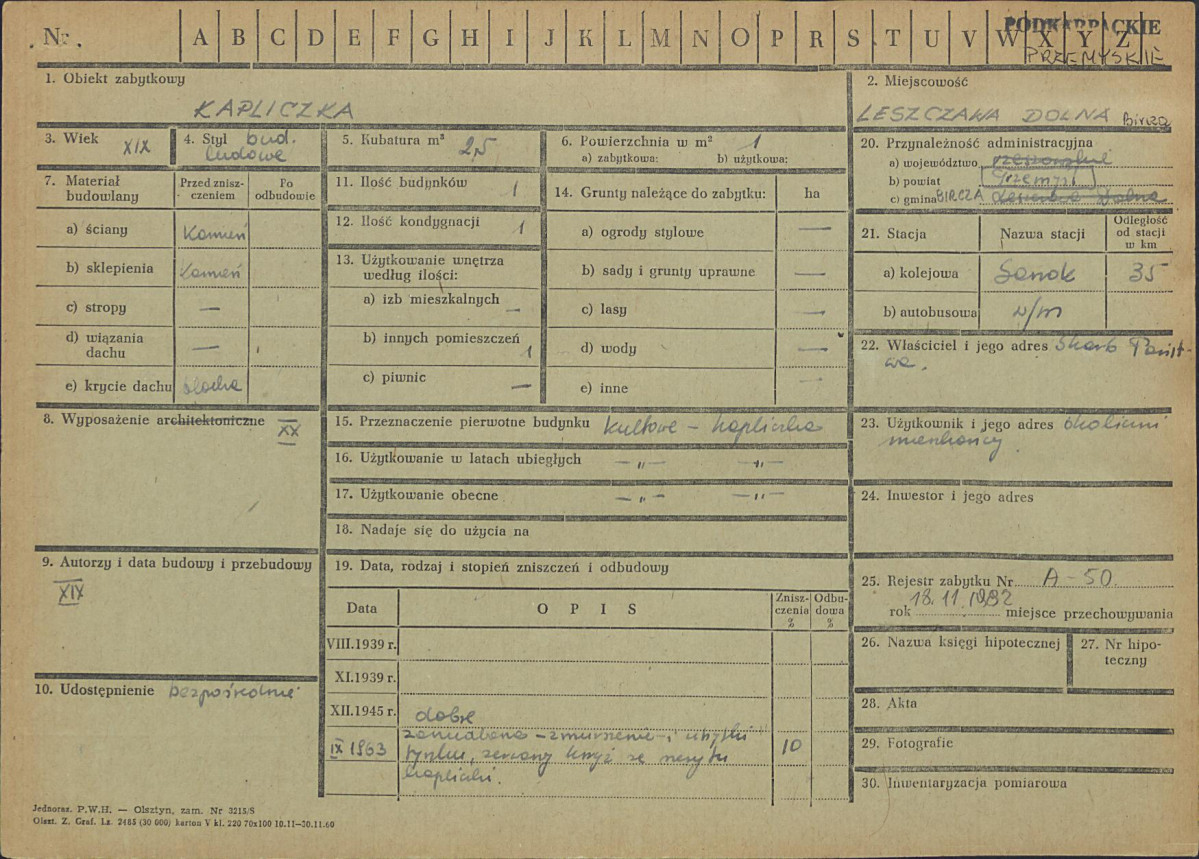 Nr. A B C D E F G H I J K L M N O P R S T U V W X Y Z
PODKARPACKIE
PRZEMYSKIE
1. Obiekt zabytkowy
KAPLICZKA
2. Miejscowość
LESZCZAWA DOLNA Bircza
3. Wiek XIX
4. Styl bud. ludowe
5. Kubatura m³ 2,5
6. Powierzchnia w m² 1
a) zabytkowa: b) użytkowa:
7. Materiał budowlany
Przed zniszczeniem
Po odbudowie
a) ściany Kamień
b) sklepienia kamień
c) stropy —
d) wiązania dachu —
e) krycie dachu blacha
8. Wyposażenie architektoniczne XX
9. Autorzy i data budowy i przebudowy
XIX
10. Udostępnienie bezpośrednie
11. Ilość budynków 1
12. Ilość kondygnacji 1
13. Użytkowanie wnętrza według ilości:
a) izb mieszkalnych —
b) innych pomieszczeń 1
c) piwnic —
14. Grunty należące do zabytku: ha
a) ogrody stylowe —
b) sady i grunty uprawne —
c) lasy —
d) wody —
e) inne —
15. Przeznaczenie pierwotne budynku kultowe – kapliczka
16. Użytkowanie w latach ubiegłych — „ — — „ —
17. Użytkowanie obecne — „ — — „ —
18. Nadaje się do użycia na
19. Data, rodzaj i stopień zniszczeń i odbudowy
Data OPIS Zniszczenia % Odbudowa %
VIII.1939 r.
XI.1939 r.
XII.1945 r. dobre
IX 1963 zaniedbana – zmurszenie i ubytki
tynku, zerwany krzyż ze szczytu 10
kapliczki.
20. Przynależność administracyjna
a) województwo rzeszowskie
b) powiat Przemyśl
c) gmina BIRCZA Leszczawa Dolna
21. Stacja Nazwa stacji Odległość od stacji w km
a) kolejowa Sanok 35
b) autobusowa w/m
22. Właściciel i jego adres Skarb Państ-
wa.
23. Użytkownik i jego adres okoliczni
mieszkańcy
24. Inwestor i jego adres
25. Rejestr zabytku Nr A-50
rok 18.11.1982 miejsce przechowywania
26. Nazwa księgi hipotecznej
27. Nr hipoteczny
28. Akta
29. Fotografie
30. Inwentaryzacja pomiarowa
Jednoraz. P.W.H. — Olsztyn, zam. Nr 3215/S
Olszt. Z. Graf. Lz. 2485 (30 000) karton V kl. 220 70x100 10.11—30.11.60